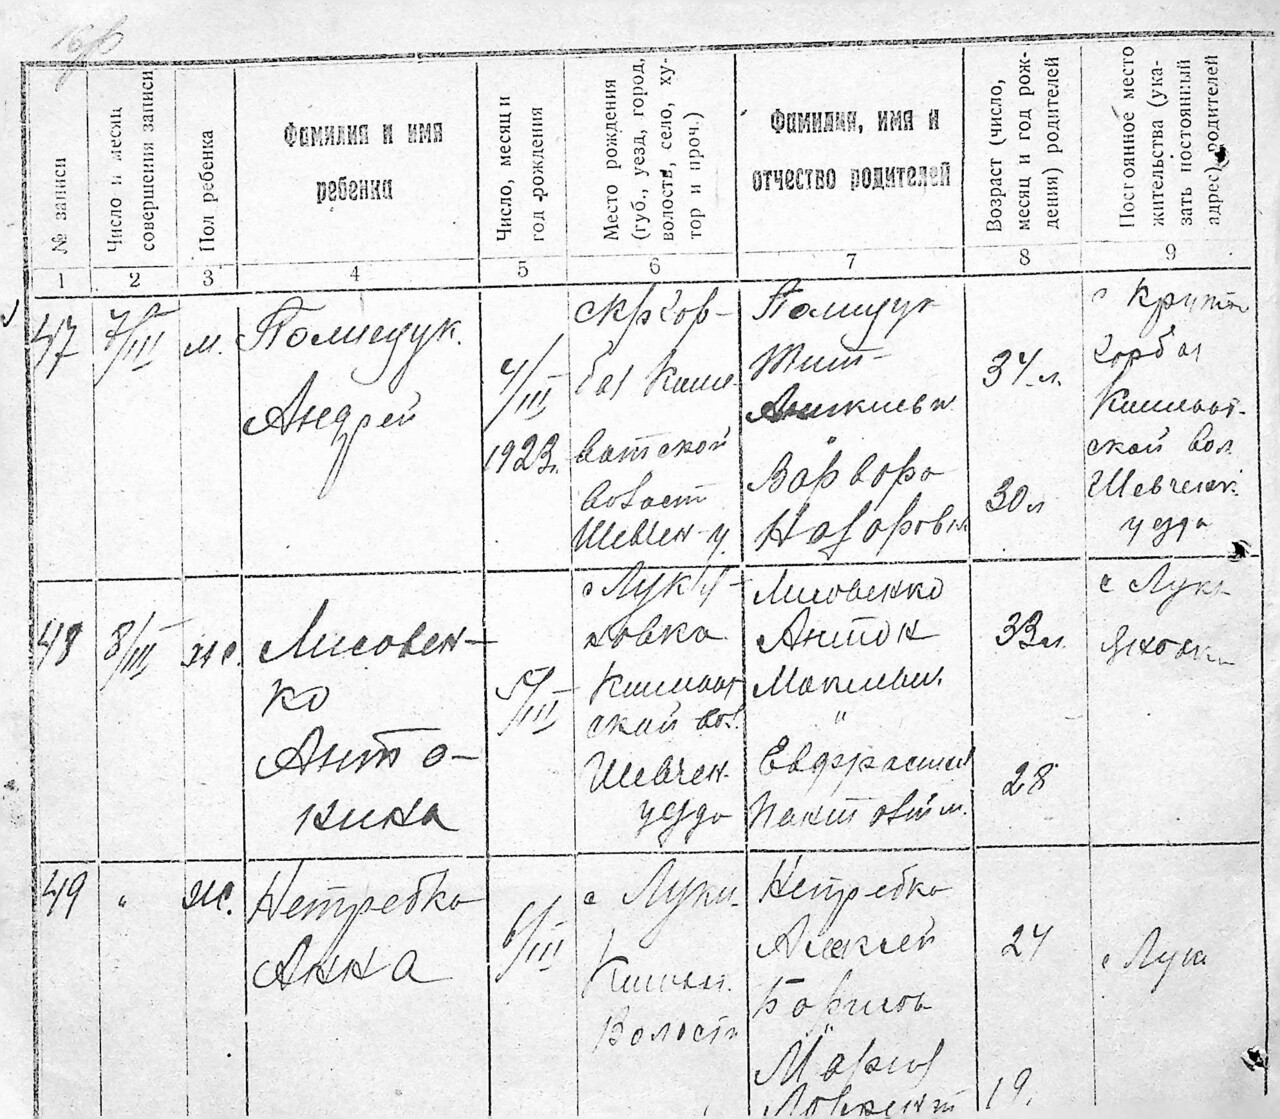 № записи
Число и месяц
совершения записи
Пол ребенка
Фамилия и имя
ребенка
Число, месяц и
год рождения
Место рождения
(губ., уезд, город,
волость, село, ху-
тор и проч.)
Фамилия, имя и
отчество родителей
Возраст (число,
месяц и год рож-
дения) родителей
Постоянное место
жительства (ука-
зать постоянный
адрес) родителей
1 2 3 4 5 6 7 8 9
47
7/III
м.
Полищук
Андрей
4/III
1923г.
бая Киш-
ватской
Волост
Шевчен-у.
Полищук
Тит
Аникиевич
"
Варвара
Назаровн
34 л.
30 л
с Крут
горбая
ской вол
Шевченк.
уезда
48
8/III
ж.
Лисовен-
ко
Анто-
нина
5/III
с Лукья-
новка
ской вол.
Шевчен-
уезда
Лисовенко
Антон
"
33 л.
28
с Лукь
яновки
49
"
ж.
Нетребко
Анна
6/III
с Лукь
Волости
Нетребко
Алексей
Борисов
"
Мария
24
19.
с Лук